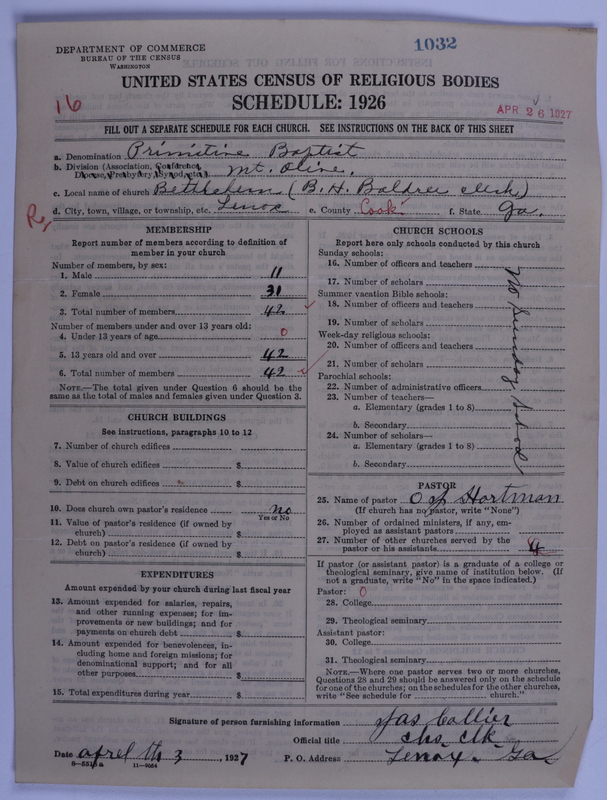 DEPARTMENT OF COMMERCE
BUREAU OF THE CENSUS
WASHINGTON
1032
UNITED STATES CENSUS OF RELIGIOUS BODIES
SCHEDULE: 1926
16
APR 26 1927
FILL OUT A SEPARATE SCHEDULE FOR EACH CHURCH. SEE INSTRUCTIONS ON THE BACK OF THIS SHEET
a. Denomination Primitive Baptist
b. Division (Association, Conference, Diocese, Presbytery, Synod, etc.) mt. Olive.
c. Local name of church Bethlehem (B. H. Baldree clerk)
d. City, town, village, or township, etc. Lenox e. County Cook f. State Ga.
MEMBERSHIP
Report number of members according to definition of
member in your church
Number of members, by sex:
1. Male 11
2. Female 31
3. Total number of members 42
Number of members under and over 13 years old:
4. Under 13 years of age 0
5. 13 years old and over 42
6. Total number of members 42
NOTE.—The total given under Question 6 should be
same as the total of males and females given under Question 3.
CHURCH BUILDINGS
See instructions, paragraphs 10 to 12
7. Number of church edifices
8. Value of church edifices $
9. Debt on church edifices $
10. Does church own pastor's residence no
Yes or No
11. Value of pastor's residence (if owned by
church) $
12. Debt on pastor's residence (if owned by
church) $
EXPENDITURES
Amount expended by your church during last fiscal year
13. Amount expended for salaries, repairs,
and other running expenses; for im-
provements or new buildings; and for
payments on church debt $
14. Amount expended for benevolences, in-
cluding home and foreign missions; for
denominational support; and for all
other purposes $
15. Total expenditures during year $
CHURCH SCHOOLS
Report here only schools conducted by this church
Sunday schools:
16. Number of officers and teachers
17. Number of scholars
Summer vacation Bible schools:
18. Number of officers and teachers
19. Number of scholars
Week-day religious schools:
20. Number of officers and teachers
21. Number of scholars
Parochial schools:
22. Number of administrative officers
23. Number of teachers—
a. Elementary (grades 1 to 8)
b. Secondary
24. Number of scholars—
a. Elementary (grades 1 to 8)
b. Secondary
No Sunday School
PASTOR
25. Name of pastor Hortman
(If church has no pastor, write "None")
26. Number of ordained ministers, if any, em-
ployed as assistant pastors
27. Number of other churches served by the
pastor or his assistants
If pastor (or assistant pastor) is a graduate of a college or
theological seminary, give name of institution below. (If
not a graduate, write "No" in the space indicated.)
Pastor: 0
28. College
29. Theological seminary
Assistant pastor:
30. College
31. Theological seminary
NOTE.—Where one pastor serves two or more churches,
Questions 28 and 29 should be answered only on the schedule
for one of the churches; on the schedules for the other churches,
write "See schedule for church."
Signature of person furnishing information Jas Collier
Official title chs. clk.
Date april th 3, 1927 P. O. Address Lenox. Ga
8—551a 11—9054